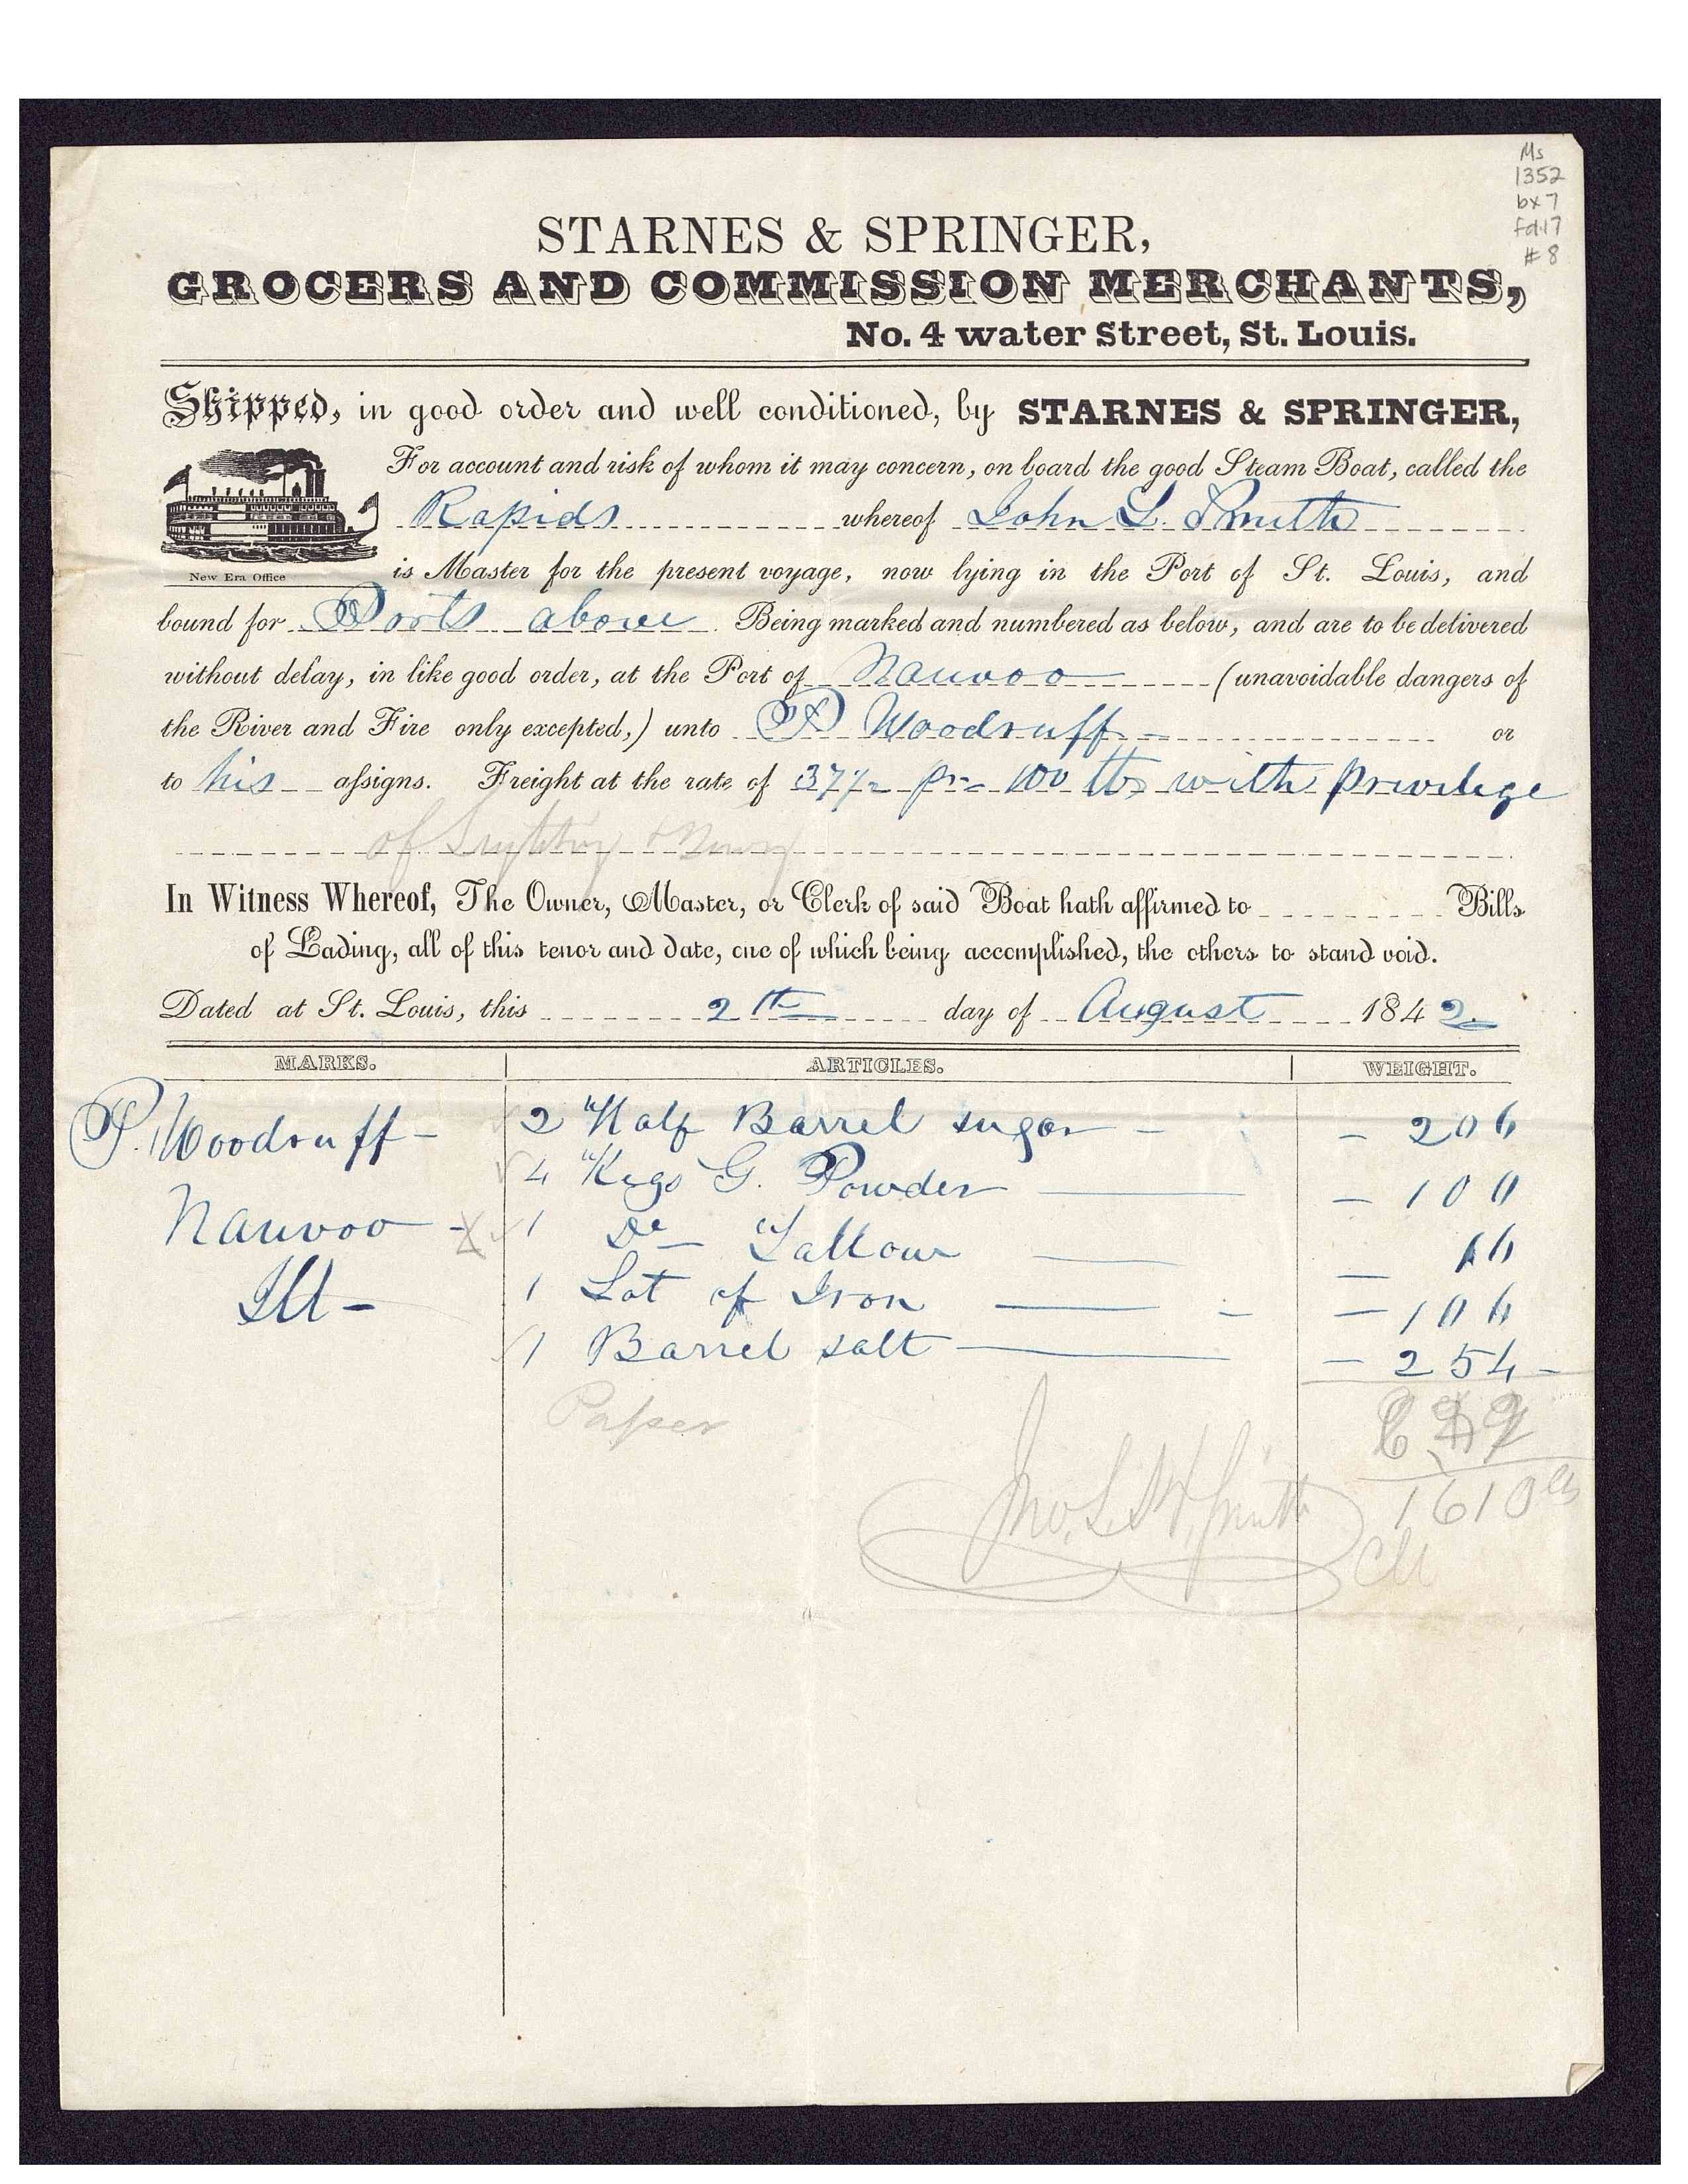 Ms
1352
bx 7
fd 17
# 8
STARNES & SPRINGER,
GROCERS AND COMMISSION MERCHANTS,
No. 4 water Street, St. Louis.
Shipped, in good order and well conditioned, by STARNES & SPRINGER,
For account and risk of whom it may concern, on board the good Steam Boat, called the
Rapids whereof John L. Smith
New Era Office
is Master for the present voyage, now lying in the Port of St. Louis, and
bound for Ports above Being marked and numbered as below, and are to be delivered
without delay, in like good order, at the Port of Nauvoo (unavoidable dangers of
the River and Fire only excepted,) unto P Woodruff or
to his assigns. Freight at the rate of 37½ pr 100 lbs with privilege
of
In Witness Whereof, The Owner, Master, or Clerk of said Boat hath affirmed to Bills
of Lading, all of this tenor and date, one of which being accomplished, the others to stand void.
Dated at St. Louis, this 2th day of August 1842
MARKS. ARTICLES. WEIGHT.
P. Woodruff - 2 Half Barrel sugar - - 206
4 Kegs G. Powder - 100
Nauvoo - X 1 Do Tallow
Ill - 1 Lot of Iron - - 106
1 Barrel salt - 254 -
Paper
Jno. L. Smith 1610